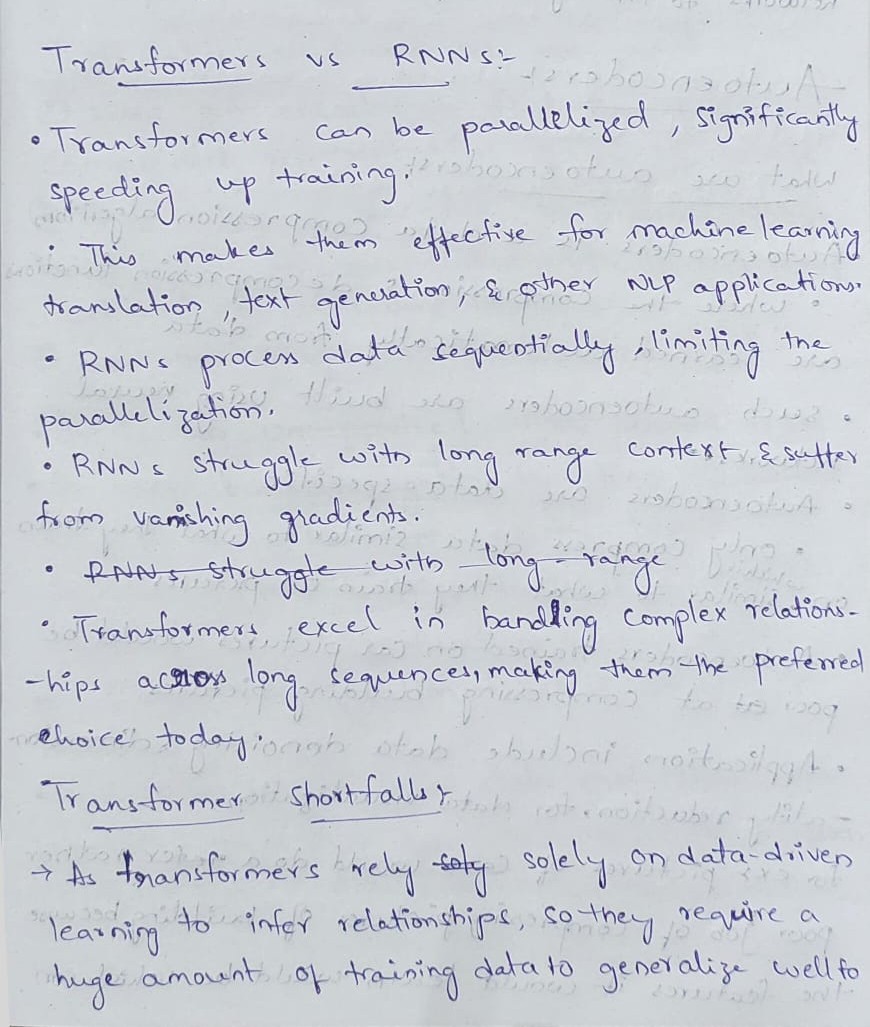 Transformers vs RNNs:-
• Transformers can be parallelized, significantly
speeding up training.
• This makes them effective for machine learning
translation, text generation, & other NLP applications.
• RNNs process data sequentially, limiting the
parallelization.
• RNNs struggle with long range context & suffer
from vanishing gradients.
• RNNs struggle with long range
• Transformers excel in handling complex relations-
-hips across long sequences, making them the preferred
choice today.
Transformer shortfalls:
→ As transformers rely soly solely on data-driven
learning to infer relationships, so they require a
huge amount of training data to generalize well to